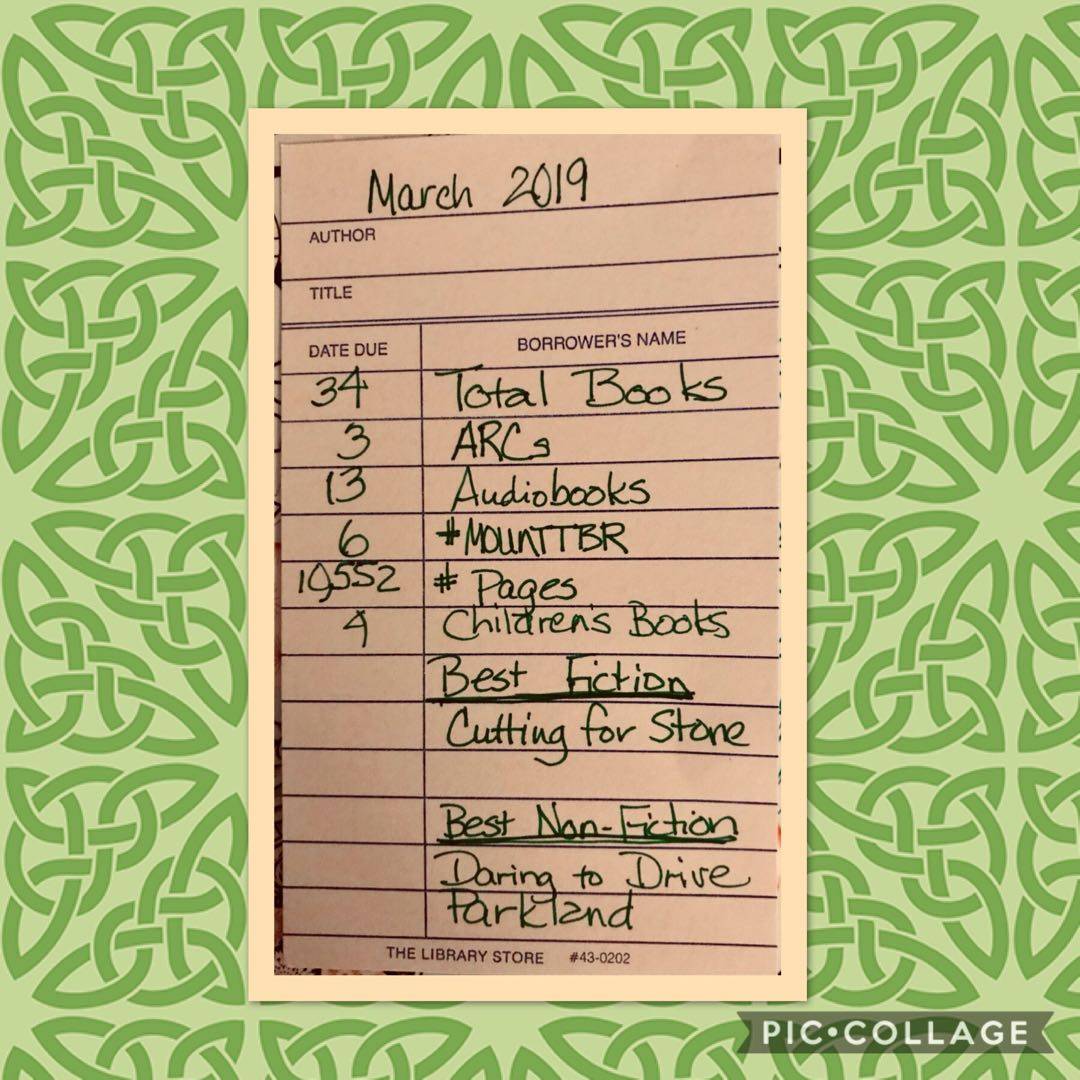 March 2019
AUTHOR
TITLE
DATE DUE BORROWER'S NAME
34 Total Books
3 ARCs
13 Audiobooks
6 #MOUNTTBR
10,552 # Pages
4 Children's Books
Best Fiction
Cutting for Stone
Best Non-Fiction
Daring to Drive
Parkland
THE LIBRARY STORE #43-0202
PIC•COLLAGE